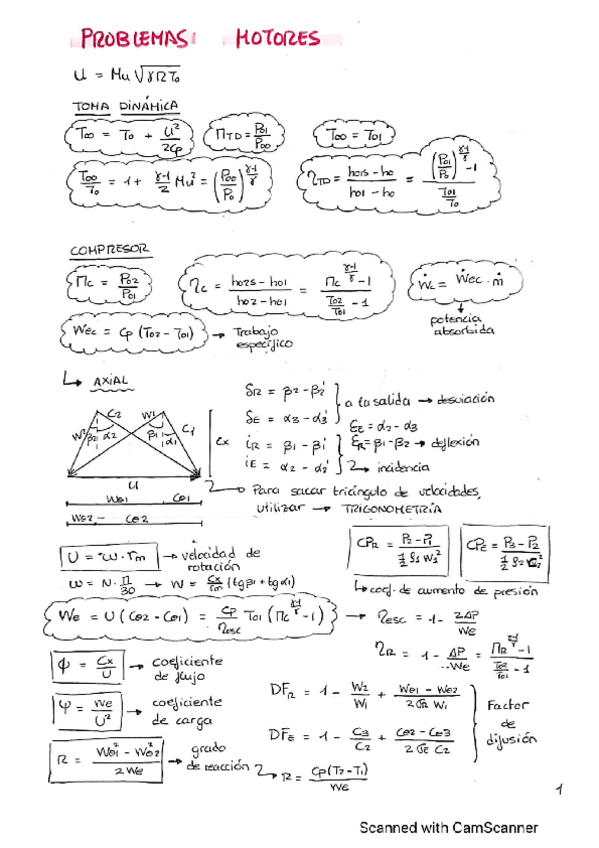 PROBLEMAS: MOTORES
U = Mu √γRT0
TOMA DINÁMICA
T00 = T0 + U²/2Cp
ΠTD = P01/P00
T00 = T01
T00/T0 = 1 + γ-1/2 Mu² = (P00/P0)^γ-1/γ
ηTD = h01s - h0 / h01 - h0 = (P01/P0)^γ-1/γ - 1 / T01/T0
COMPRESOR
Πc = P02/P01
ηc = h02s - h01 / h02 - h01 = Πc^γ-1/γ - 1 / T02/T01 - 1
Ẇc = Wec · ṁ
↓ potencia
absorbida
Wec = Cp (T02 - T01) → Trabajo
específico
↳ AXIAL
C2 W1
W2 β2 α2 β1 α1 C1
Cx
U
Wθ1 Cθ1
Wθ2 - Cθ2
δR = β2 - β2'
δE = α3 - α3'
a la salida → desviación
iR = β1 - β1'
iE = α2 - α2'
incidencia
εE = α2 - α3
εR = β1 - β2 → deflexión
Para sacar triángulo de velocidades,
utilizar → TRIGONOMETRÍA
U = ω · rm → velocidad de
rotación
ω = N · Π/30 → W = Cx/rm (tgβ1 + tgα1)
CPR = P2 - P1 / ½ ρ1 W1²
CPE = P3 - P2 / ½ ρ2 C2²
↳ coef. de aumento de presión
We = U (Cθ2 - Cθ1) = Cp/ηesc T01 (Πc^γ-1/γ - 1) → ηesc = 1 - 2ΔP/We
ηR = 1 - ΔP/We = ΠR^γ-1/γ - 1 / T02/T01 - 1
φ = Cx/U → coeficiente
de flujo
ψ = We/U² → coeficiente
de carga
R = Wθ1² - Wθ2² / 2We → grado
de reacción
R = Cp(T2 - T1)/We
DFR = 1 - W2/W1 + Wθ1 - Wθ2 / 2σR W1
DFE = 1 - C3/C2 + Cθ2 - Cθ3 / 2σE C2
Factor
de
difusión
1
Scanned with CamScanner